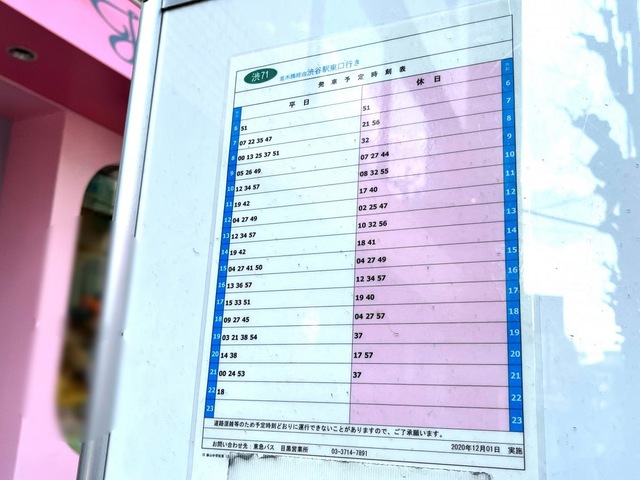 渋71 並木橋経由渋谷駅東口行き
発車予定時刻表
平日 休日
6 51 51 6
7 07 22 35 47 21 56 7
8 00 13 25 37 51 32 8
9 05 26 49 07 27 44 9
10 12 34 57 08 32 55 10
11 19 42 17 40 11
12 04 27 49 02 25 47 12
13 12 34 57 10 32 56 13
14 19 42 18 41 14
15 04 27 41 50 04 27 49 15
16 13 36 57 12 34 57 16
17 15 33 51 19 40 17
18 09 27 45 04 27 57 18
19 03 21 38 54 37 19
20 14 38 17 57 20
21 00 24 53 37 21
22 18 22
23 23
道路混雑等のため予定時刻どおりに運行できないことがありますので、ご了承願います。
お問い合わせ先：東急バス 目黒営業所 03-3714-7891 2020年12月01日 実施